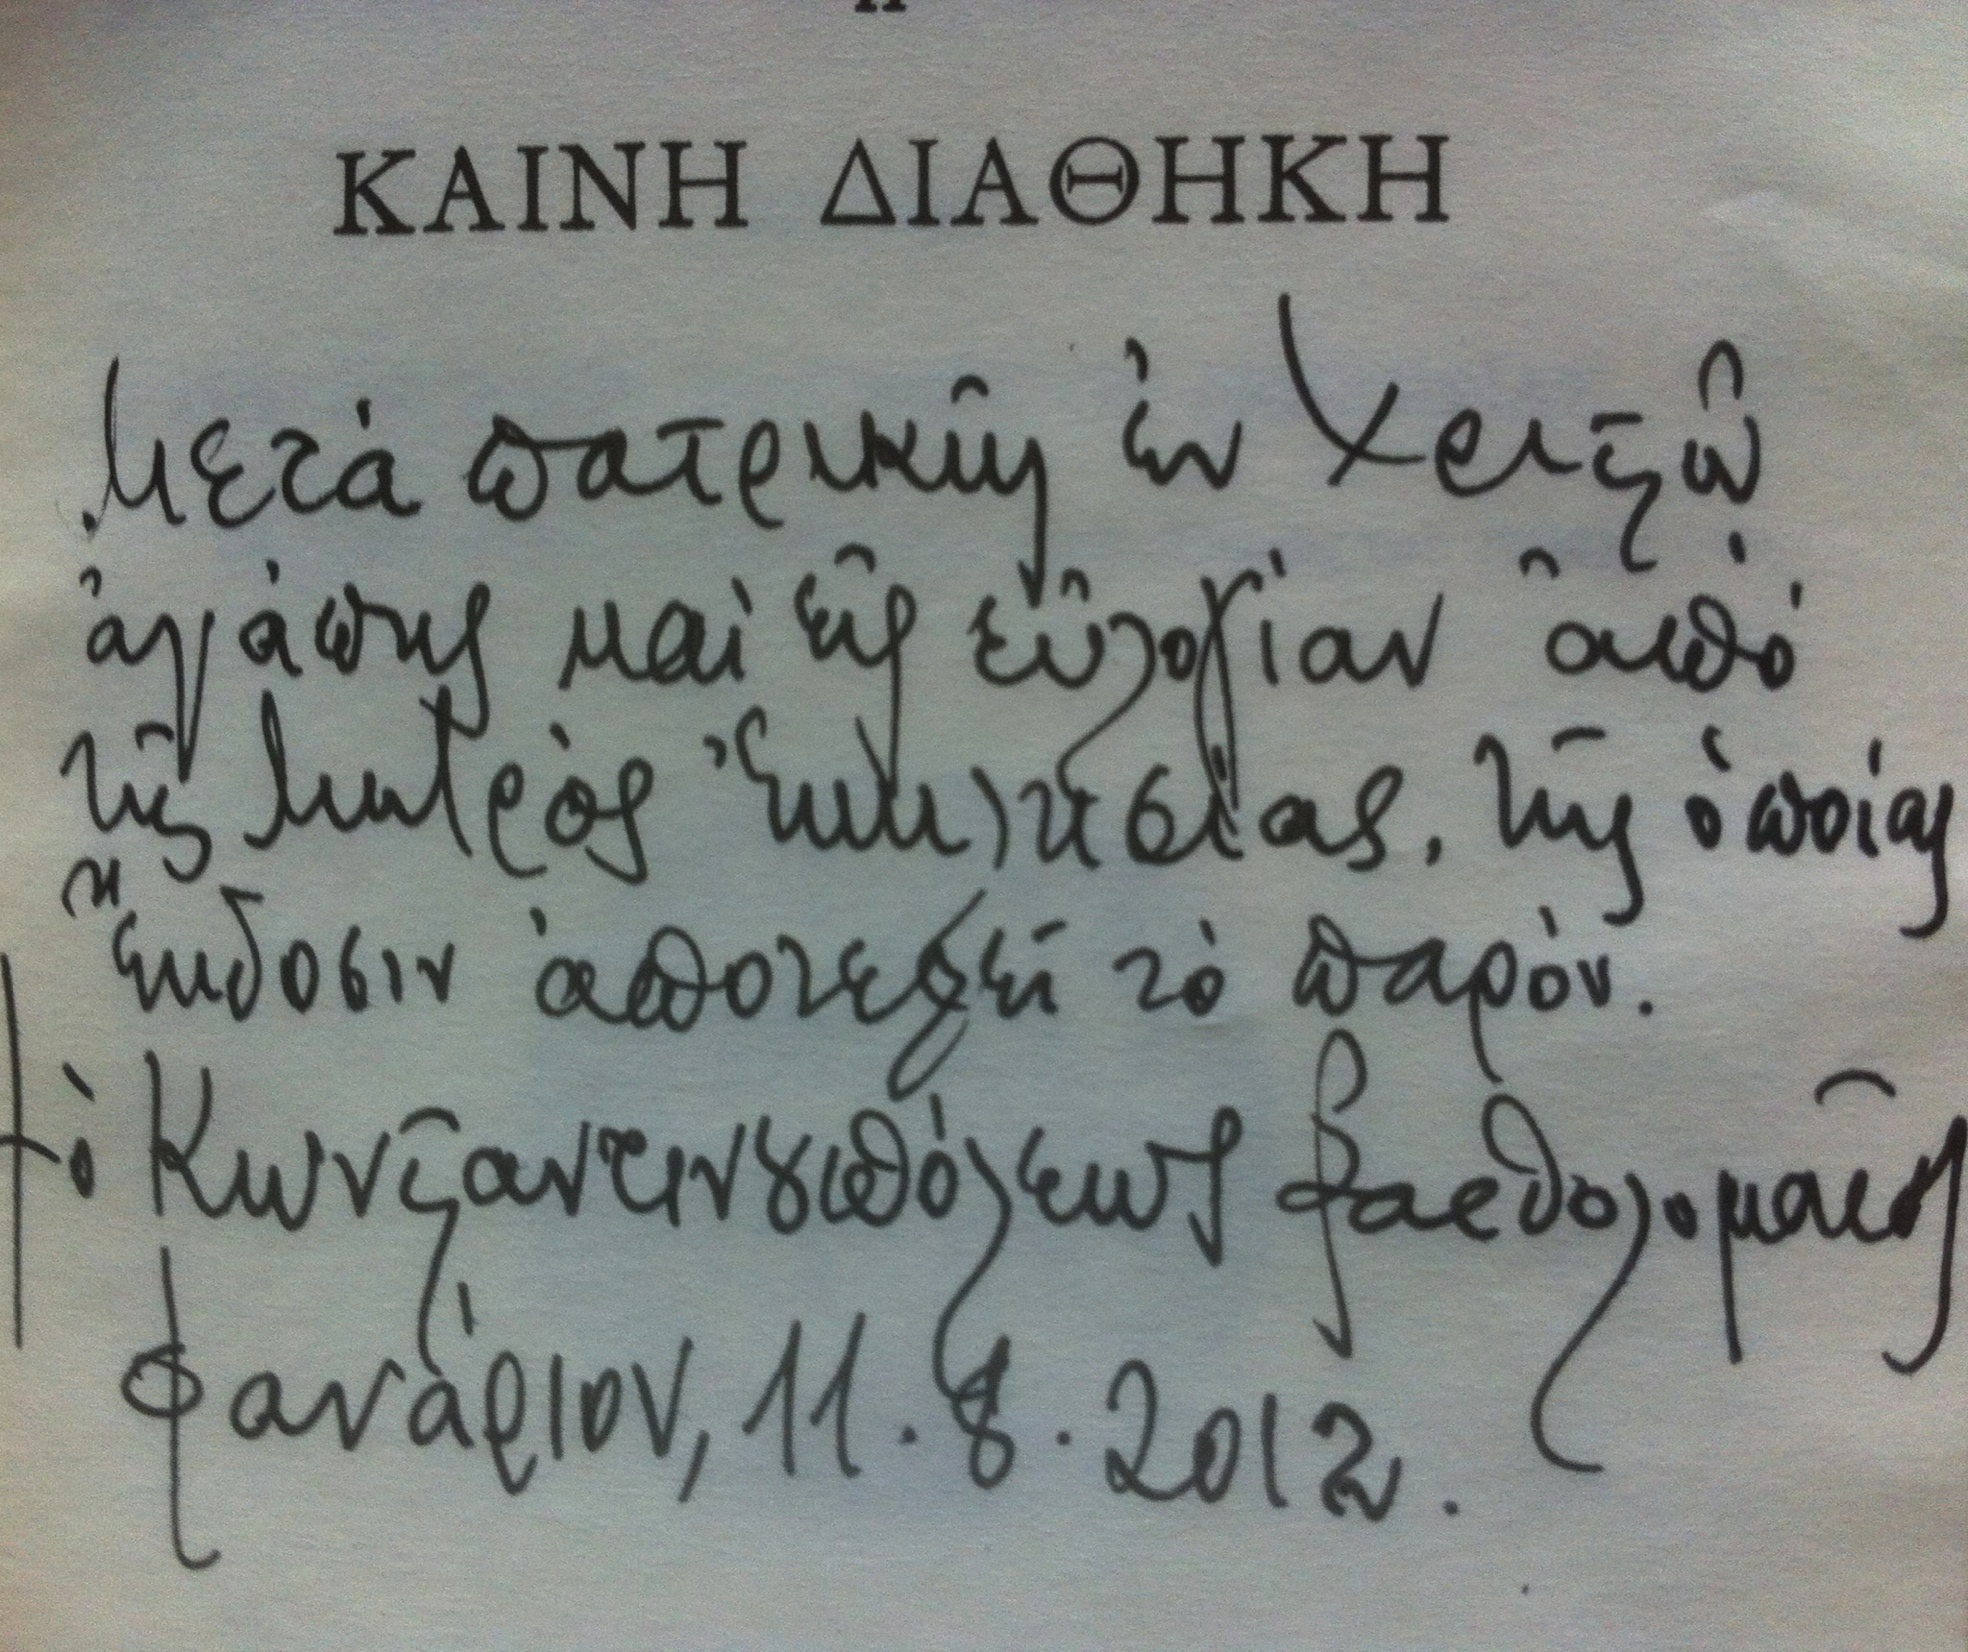 Η
ΚΑΙΝΗ ΔΙΑΘΗΚΗ
Μετὰ πατρικῆς ἐν Χριστῷ
ἀγάπης καὶ εἰς εὐλογίαν ἀπὸ
τῆς Μητρὸς Ἐκκλησίας, τῆς ὁποίας
ἔκδοσιν ἀποτελεῖ τὸ παρόν.
† ὁ Κωνσταντινουπόλεως Βαρθολομαῖος
Φανάριον, 11.8.2012.